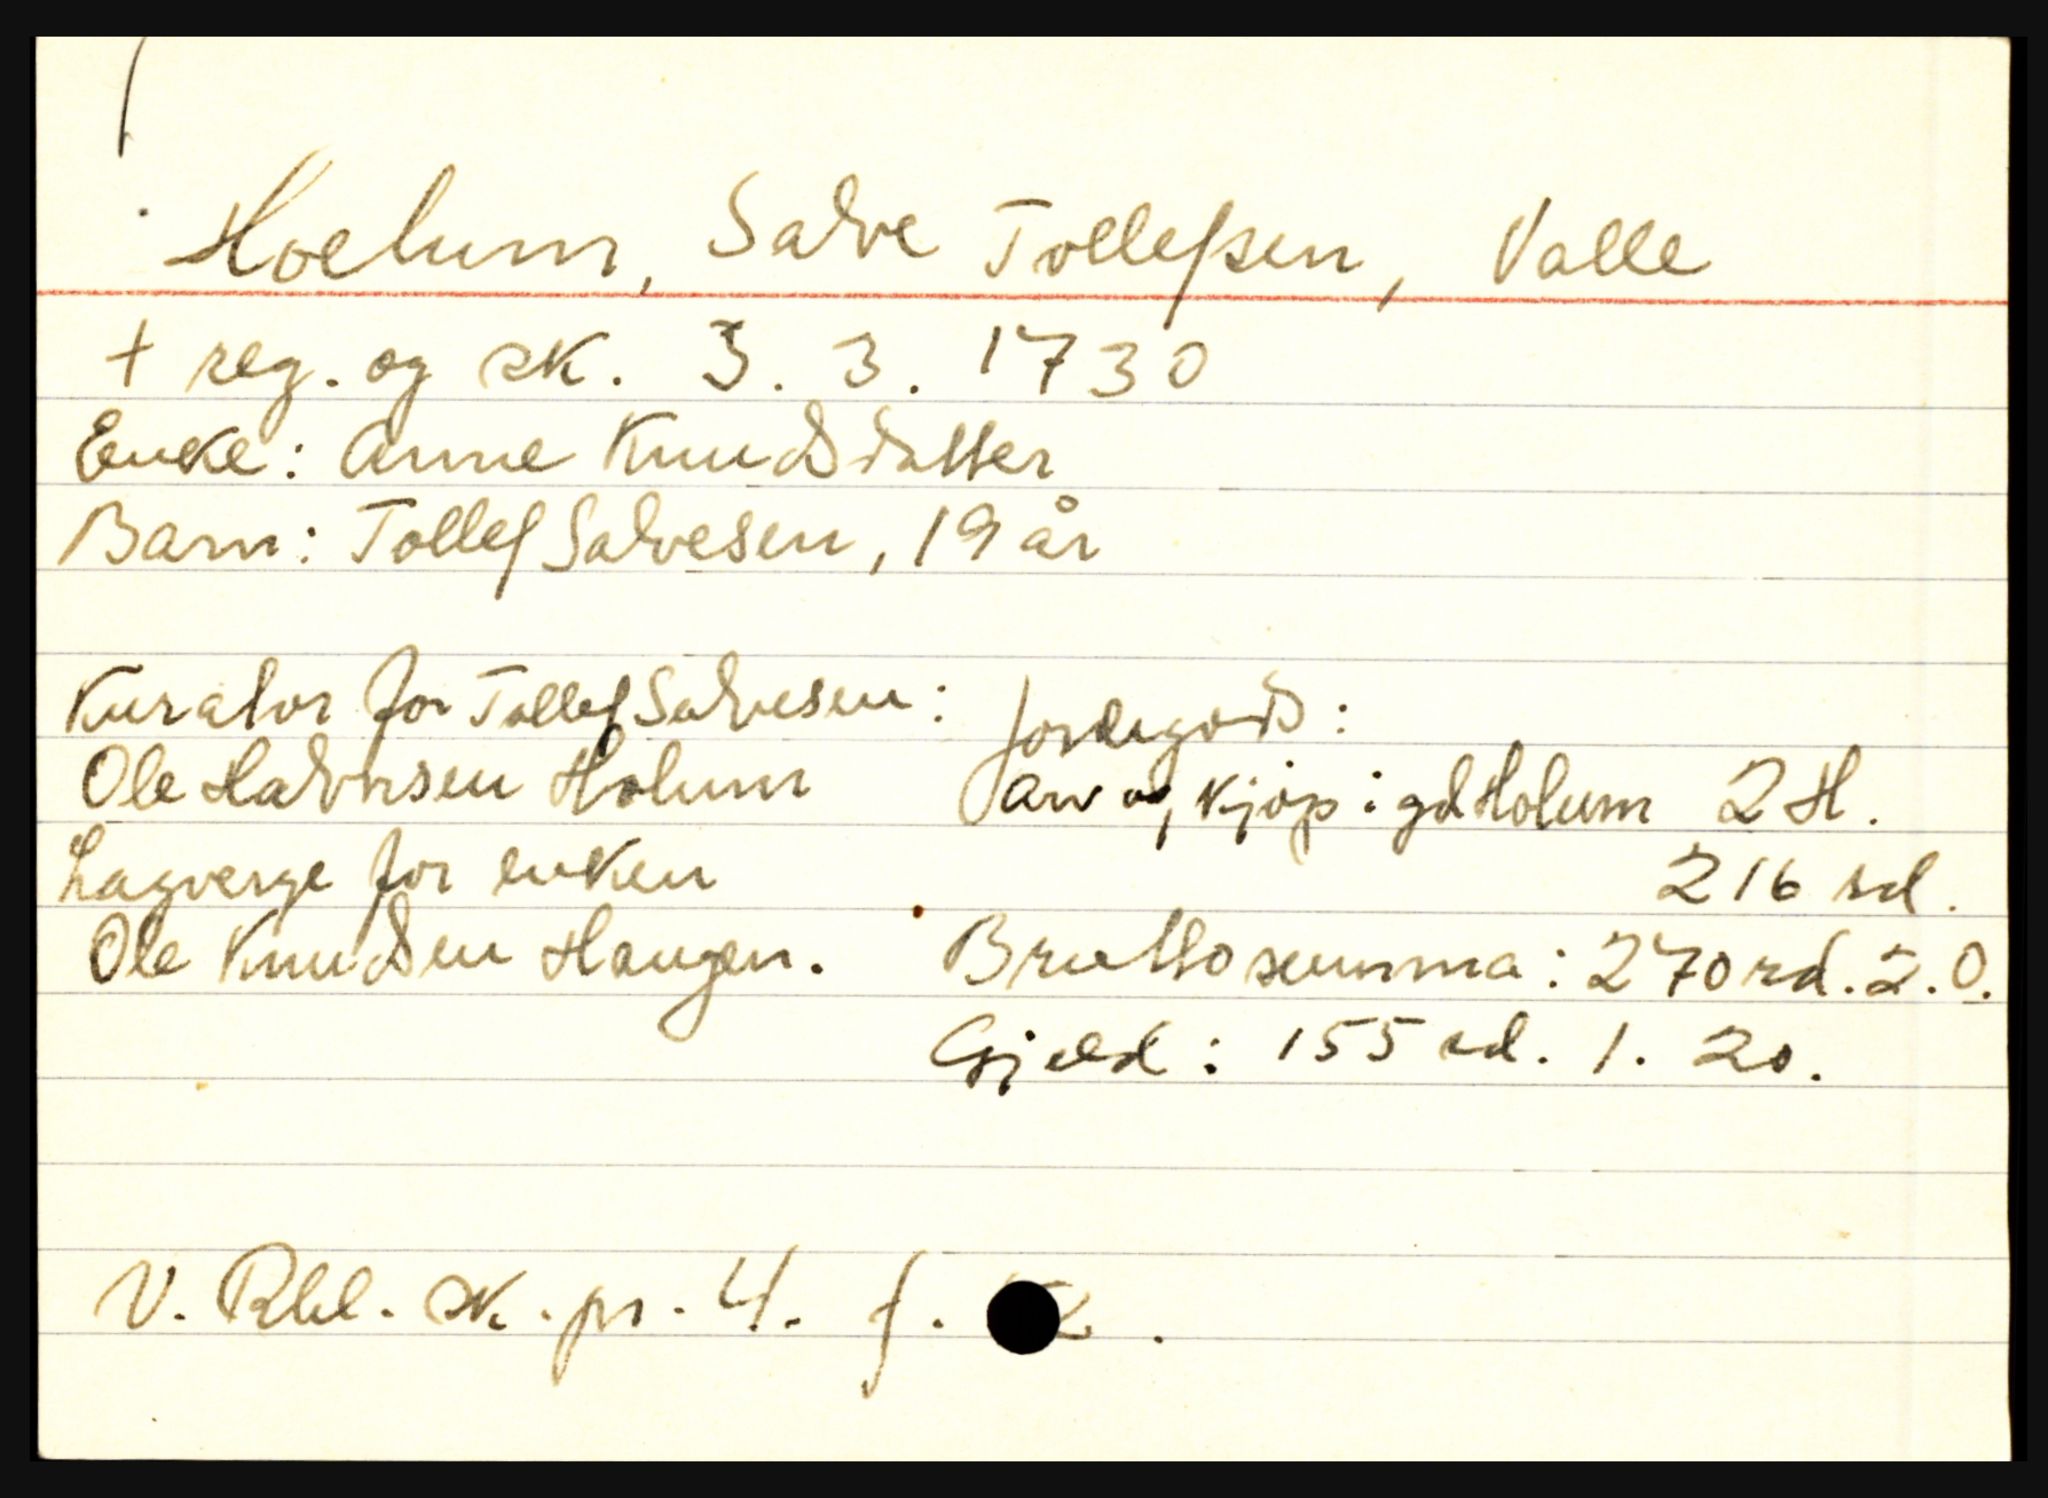 Hoelum, Salve Tollefsen, Valle
+ reg. og sk. 3. 3. 1730
Enke: Anne Knudsdatter
Barn: Tollef Salvesen, 19 år
Kurator for Tollef Salvesen:
Ole Halvorsen Holum
Lagverge for enken
Ole Knudsen Haugen.
Jordegods:
Arv og kjøp i gd Holum 2 H.
216 rd.
Bruttosumma: 270 rd. 2. 0.
Gjeld: 155 rd. 1. 20.
V. Rbl. sk. pr. 4. f.